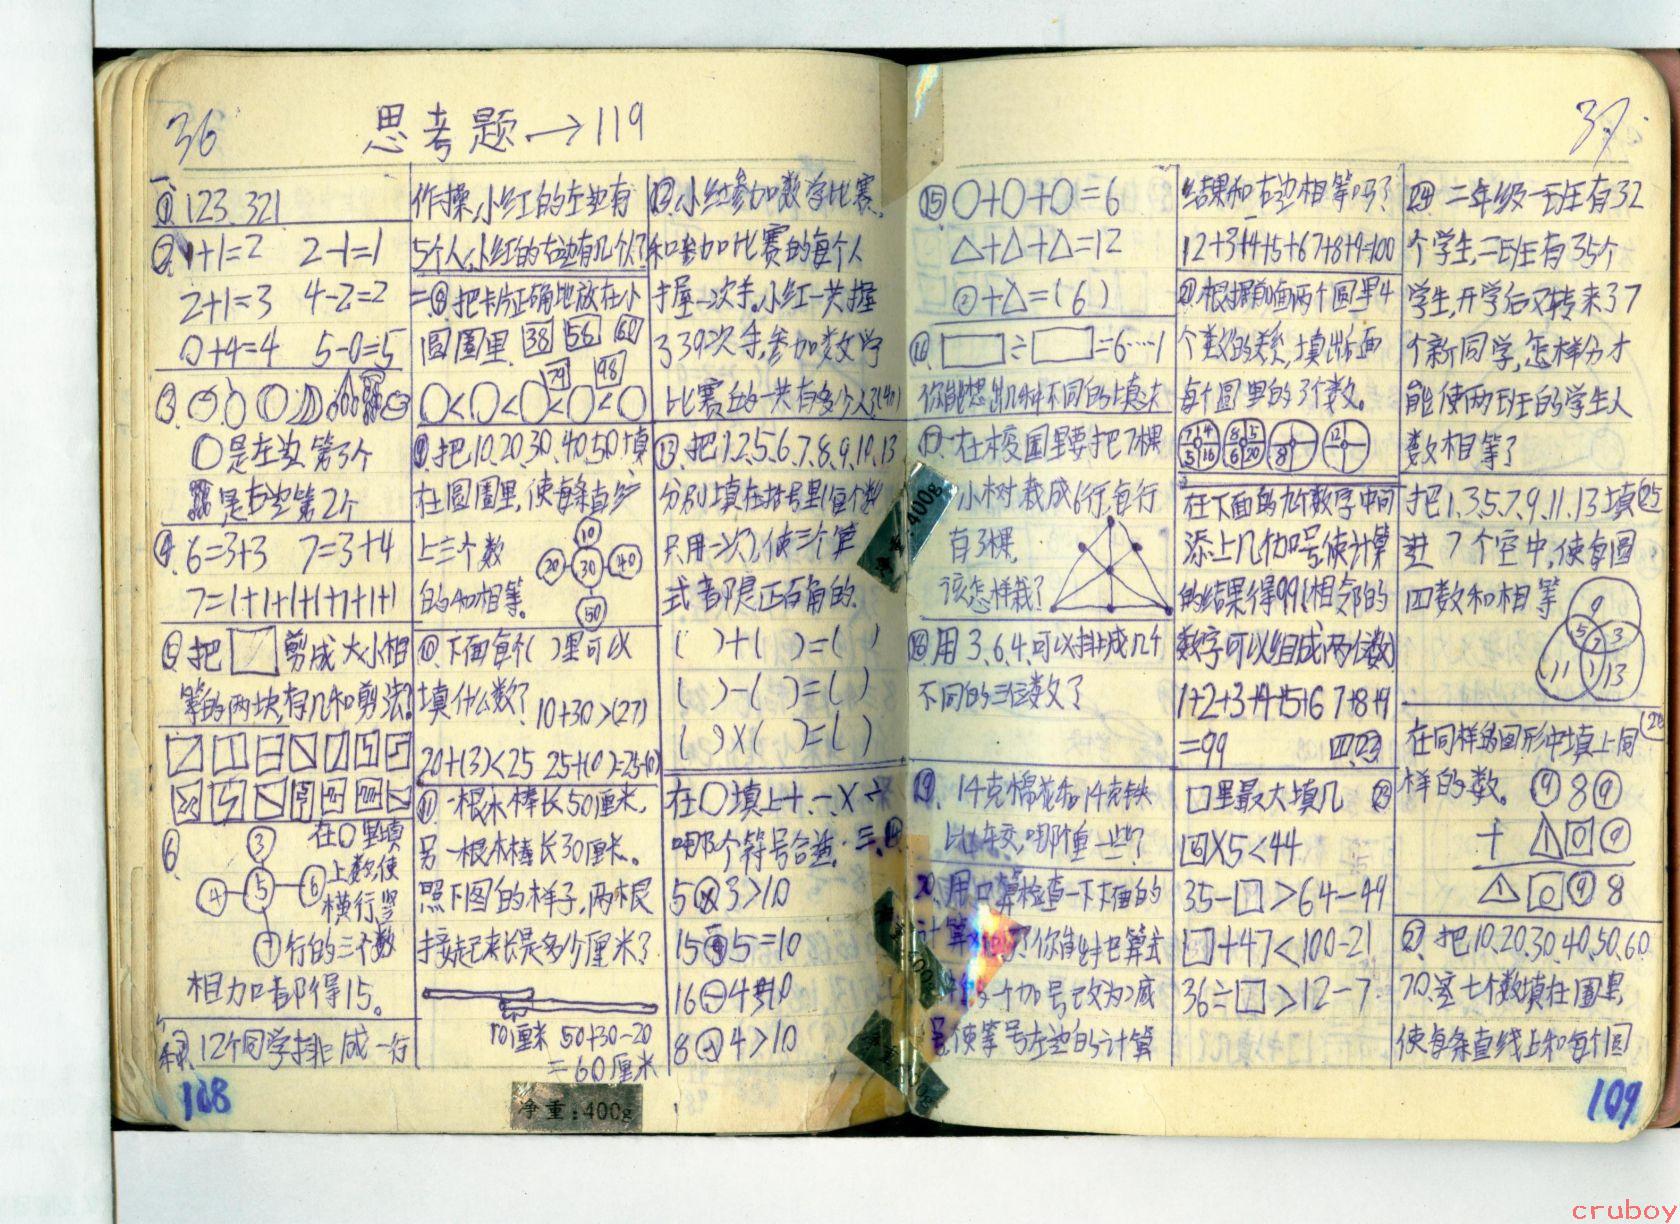 36
思考题→119
① 123、321
② 1+1=2 2-1=1
2+1=3 4-2=2
0+4=4 5-0=5
③
○是左边第3个
是右边第2个
④ 6=3+3 7=3+4
7=1+1+1+1+1+1+1
⑤ 把 剪成大小相
等的两块有几种剪法?
6 ③ 在○里填
上数,使
④ ⑤ ⑥ 横行竖
行的三个数
相加都得15。
12个同学排成一行
108
作操,小红的左边有
5个人,小红的右边有几个人?
二⑧ 把卡片正确地放在小
圆圈里 38 56 60
79 98
○<○<○<○<○
⑨ 把10、20、30、40、50填
在圆圈里,使每条直线
上三个数 10
20 30 40
的和相等。 50
⑩ 下面每个( )里可以
填什么数? 10+30>(27)
20+(3)<25
⑪ 一根木棒长50厘米,
另一根木棒长30厘米。
照下图的样子,两根
接起来长是多少厘米?
10厘米 50+30-20
=60厘米
⑫ 小红参加数学比赛,
和参加比赛的每个人
握一次手,小红一共握
339次手,参加数学
比赛的一共有多少人?
⑬ 把1、2、5、6、7、8、9、10、13
分别填在括号里(每个数
只用一次),使三个算
式都是正确的.
( )+( )=( )
( )-( )=( )
( )×( )=( )
在○填上+、-、×、÷
哪个符号合适. 三、⑭
5⊗3>10
15 5=10
16⊖4 10
8 4>10
净重:400g
净重:400g
37
⑮ ○+○+○=6
△+△+△=12
②+△=(6)
⑯ □÷□=6……1
你能想出几种不同的填法
⑰ 在校园里要把7棵
小树栽成6行,每行
有3棵,
该怎样栽?
⑱ 用3、6、4、可以排成几个
不同的三位数?
⑲ 14克棉花和14克铁
比较,哪个重一些?
20、用口算检查一下下面的
计算 ?你能把算式
个加号改为减
号,使等号左边的计算
结果和右边相等吗?
12+3+4+5+67+8+9=100
㉑ 根据前面两个圆里4
个数的关系,填出后面
每个圆里的3个数。
在下面的九个数字中间
添上几个加号使计算
的结果得99(相邻的
数字可以组成两位数)
1+2+3+4+5+67+8+9
=99 四、23
□里最大填几 ㉓
×5<44
35-□>64-49
□+47<100-21
36÷□>12-7
㉔ 二年级一班有32
个学生,二班有35个
学生,开学后又转来37
个新同学,怎样分才
能使两班的学生人
数相等?
把1、3、5、7、9、11、13填 25
进7个空中,使每圆
四数和相等
9
5 7 3
11 1 13
在同样的图形中填上同
样的数。 ⑨ 8 ⑨
+ △ □ ⑨
△ □ ⑨ 8
㉗ 把10、20、30、40、50、60、
70、这七个数填在圆里,
使每条直线上和每个圆
109
cruboy